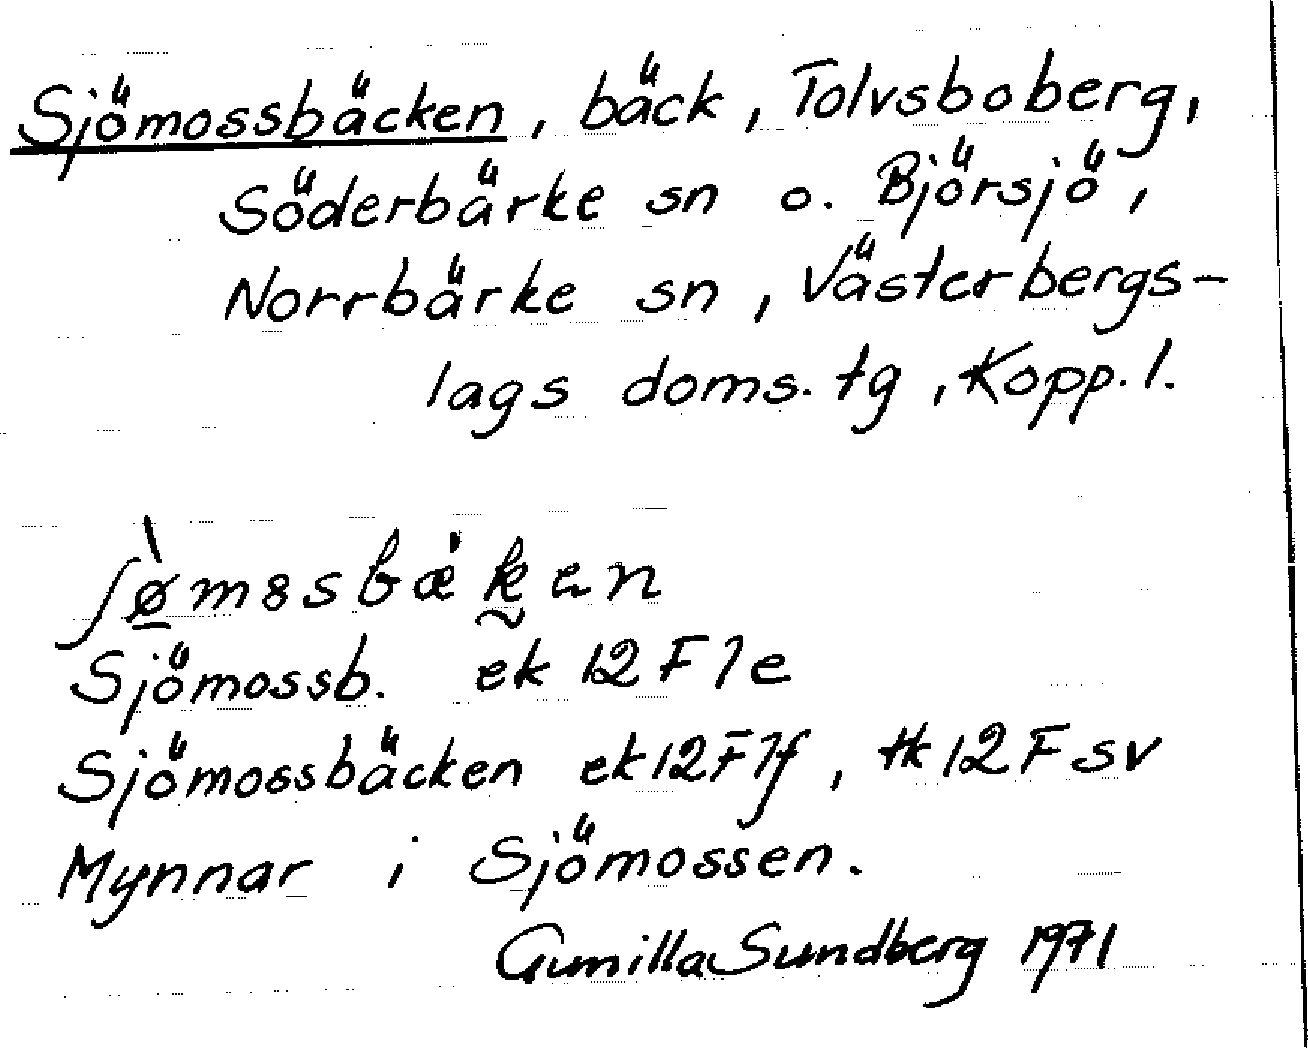 Sjömossbäcken, bäck, Tolvsboberg,
Söderbärke sn o. Björsjö,
Norrbärke sn, Västerbergs-
lags doms. tg, Kopp. l.
ʃø̠̀m8sbæ̇k̰en
Sjömossb. ek 12 F 7e
Sjömossbäcken ek 12 F 7f, tk 12 F sv
Mynnar i Sjömossen.
Gunilla Sundberg 1971